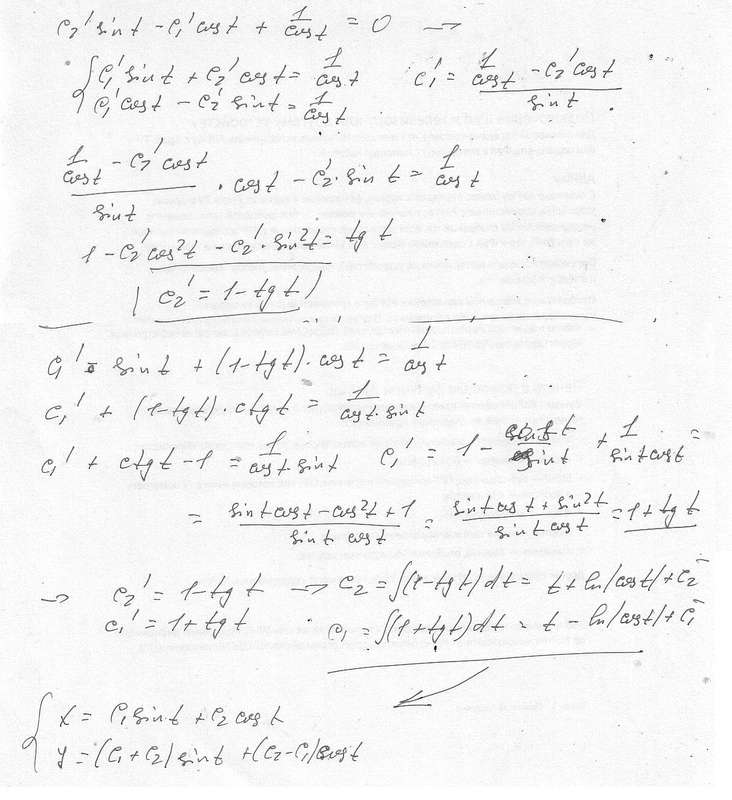 C₂' sin t - C₁' cos t + 1/cos t = 0 →
{ C₁' sin t + C₂' cos t = 1/cos t    C₁' = (1/cos t - C₂' cos t)/sin t
C₁' cos t - C₂' sin t = 1/cos t
(1/cos t - C₂' cos t)/sin t · cos t - C₂' · sin t = 1/cos t
1 - C₂' cos²t - C₂' · sin²t = tg t
| C₂' = 1 - tg t |
C₁' sin t + (1 - tg t) · cos t = 1/cos t
C₁' + (1 - tg t) · ctg t = 1/(cos t · sin t)
C₁' + ctg t - 1 = 1/(cos t · sin t)    C₁' = 1 - cos t/sin t + 1/(sin t cos t) =
= (sin t cos t - cos²t + 1)/(sin t cos t) = (sin t cos t + sin²t)/(sin t cos t) = 1 + tg t
→ C₂' = 1 - tg t → C₂ = ∫(1 - tg t) dt = t + ln|cos t| + C̄₂
C₁' = 1 + tg t    C₁ = ∫(1 + tg t) dt = t - ln|cos t| + C̄₁
{ x = C₁ sin t + C₂ cos t
y = (C₁ + C₂) sin t + (C₂ - C₁) cos t